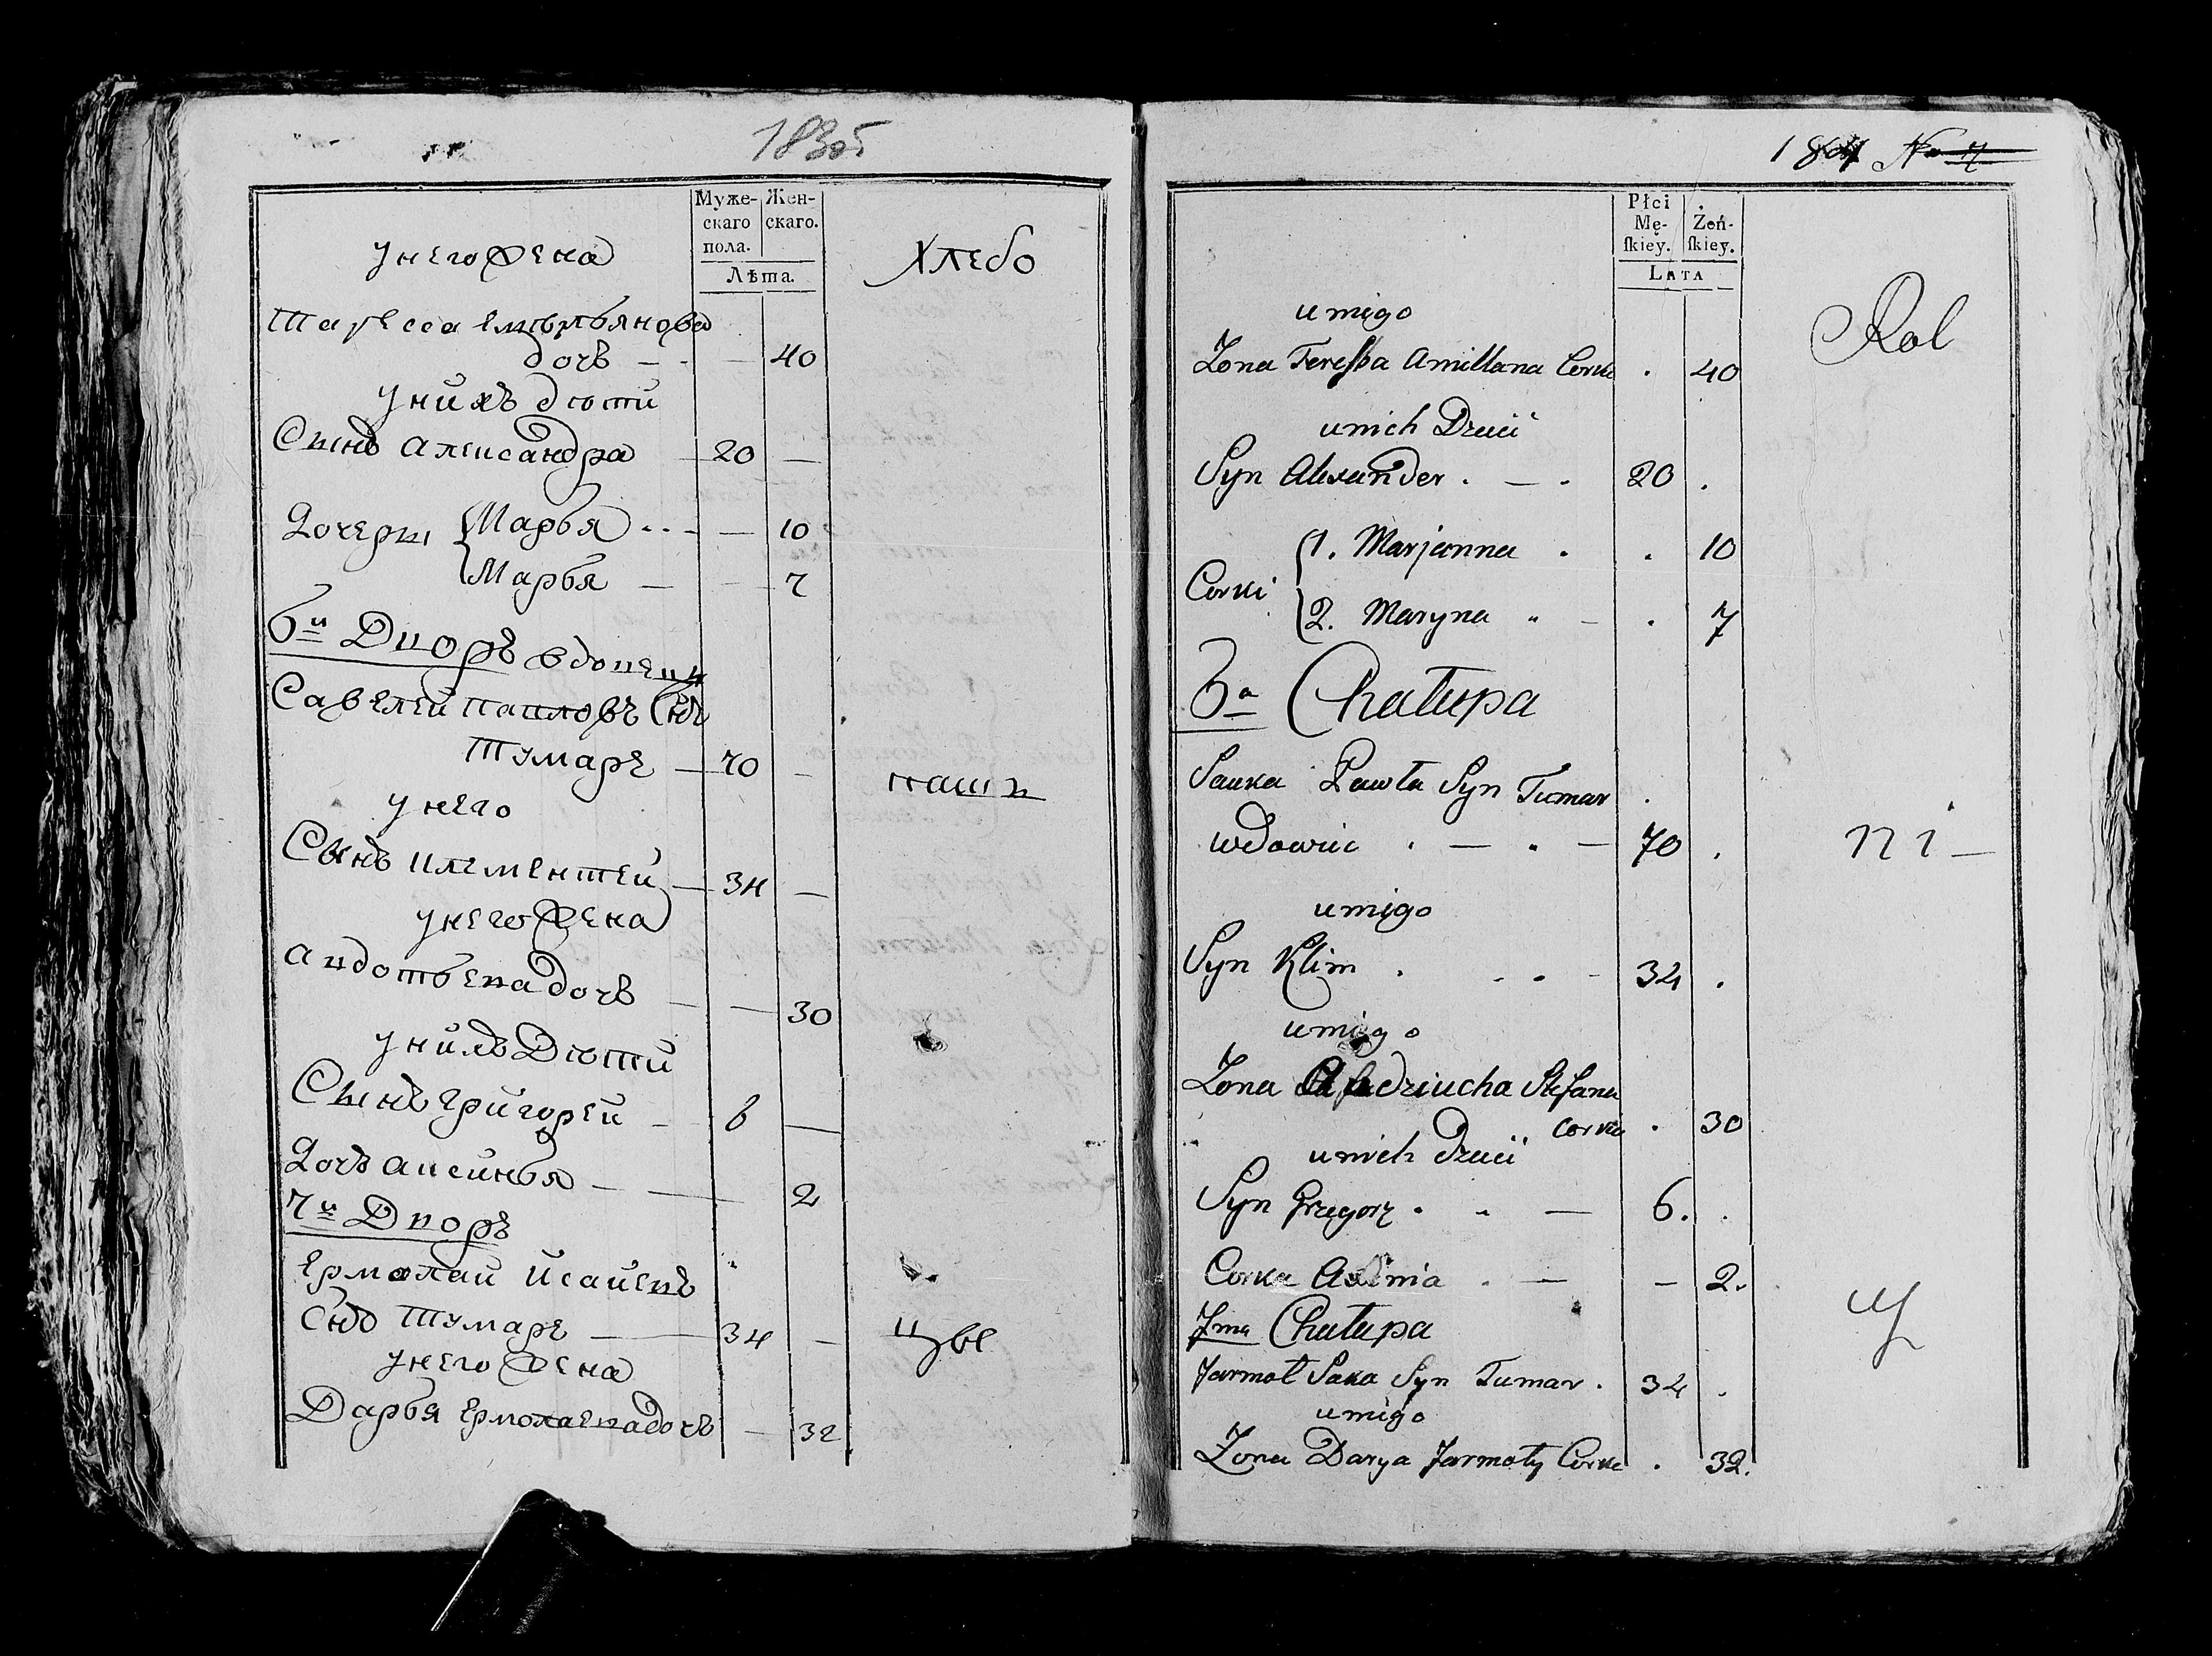 1835
Муже-
скаго
пола.
Жен-
скаго.
Лѣта.
у него Жена
Хлебо
Таресса Емильянова
дочь — 40
у нихъ дѣти
Сынъ Александра 20 —
Дочери { Марья — 10
{ Марья — — 7
6й Дворъ вдовецъ
Савелей Павловъ Снъ
Тумаръ — 70 —
паши
у него
Сынъ Клементей — 34 —
у него Жена
дочь — — 30
у нихъ Дѣти
Сынъ Григорей 6 —
Дочь Аксинья — — 2
7й Дворъ
Ермолай Исаевъ
Снъ Тумаръ — 34 —
цы
у него Жена
Дарья Ермолаева дочь — 32
18
Płci
Mę-
ſkiey.
Żeń-
ſkiey.
Lata
u niego
Rol
Żona Teressa Amillana Corka . 40
u nich Dzieci
Syn Alexander . — . 20 .
{ 1. Marjanna . . 10
Corki
{ 2. Maryna „ — . 7
6a Chałupa
Sauka Pawła Syn Tumar .
wdowiec . — „ — 70 .
ni —
u niego
Syn Klim . . . - 34 .
u niego
Żona Stefana
Corka . 30
u nich dzieci
Syn Grzegorz . „ — 6. .
Corka Axinia . — — 2.
7ma Chałupa
cy
Jarmoł Saka Syn Tumar . 34 .
u niego
Żona Darya Jarmoły Corka . 32.